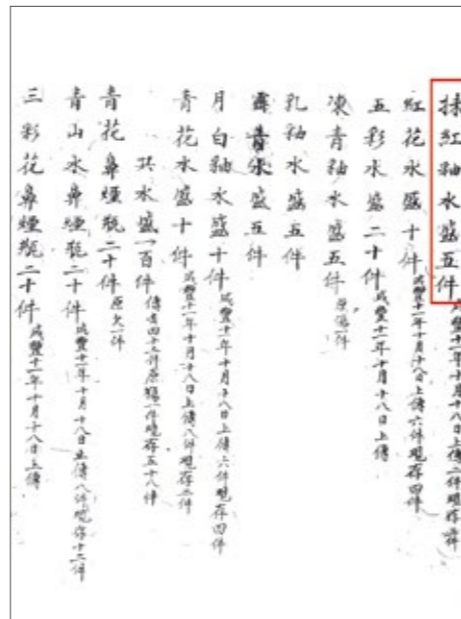 抹紅釉水盛五件 咸豐十一年十月十八日上傳二件現存三件
紅花水盛十件 咸豐十一年十月十八日上傳六件現存四件
五彩水盛二十件 咸豐十一年十月十八日上傳
凍青釉水盛五件 原傷一件
乳釉水盛五件
霽青水盛五件
月白釉水盛十件 咸豐十一年十月十八日上傳六件現存四件
青花水盛十件 咸豐十一年十月十八日上傳八件現存二件
共水盛一百件 傳去四十二件原傷一件現存五十八件
青花鼻煙瓶二十件 原欠一件
青山水鼻煙瓶二十件 咸豐十一年十月十八日上傳八件現存十二件
三彩花鼻煙瓶二十件 咸豐十一年十月十八日上傳